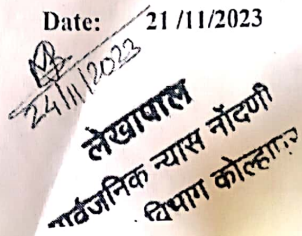 Date: 21 /11/2023
24/11/2023
लेखापाल
सार्वजनिक न्यास नोंदणी
विभाग कोल्हापूर